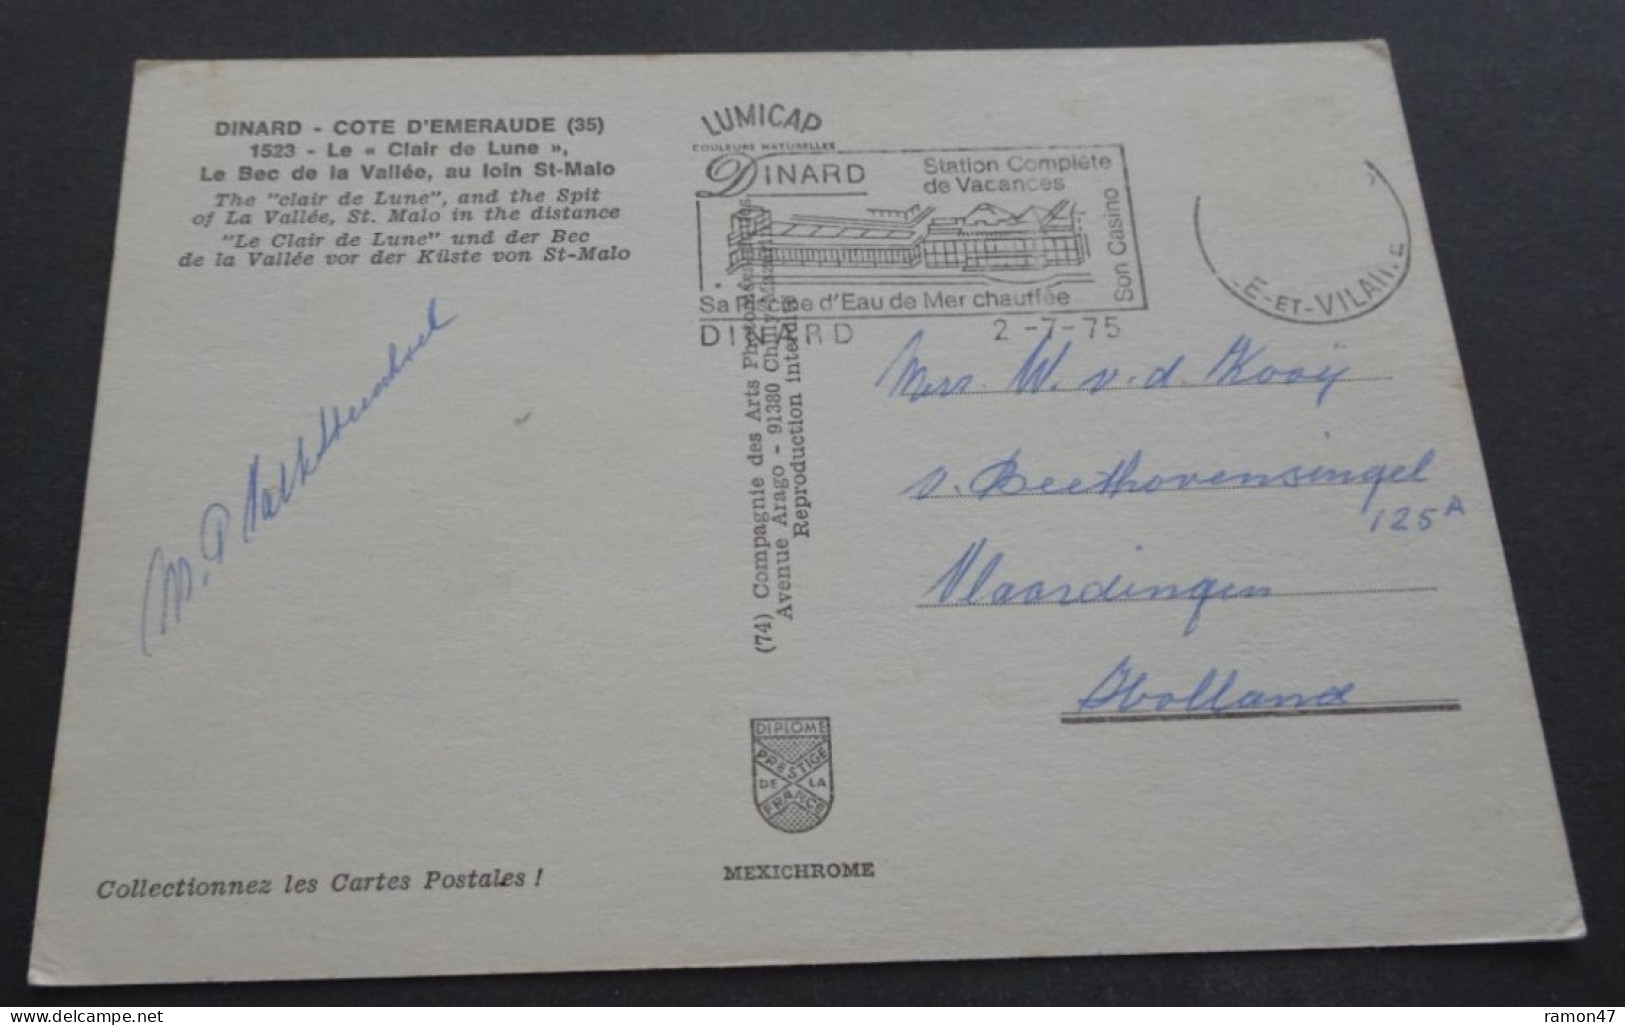 DINARD - COTE D'EMERAUDE (35)
1523 - Le « Clair de Lune »,
Le Bec de la Vallée, au loin St-Malo
The "clair de Lune", and the Spit
of La Vallée, St. Malo in the distance
"Le Clair de Lune" und der Bec
de la Vallée vor der Küste von St-Malo
LUMICAP
COULEURS NATURELLES
DINARD
Station Complète
de Vacances
Son Casino
Sa Piscine d'Eau de Mer chauffée
DINARD 2-7-75
E-ET-VILAINE
(74) Compagnie des Arts Photomécaniques
Avenue Arago - 91380 Chilly-Mazarin
Reproduction interdite
M. P.
Mevr. W. v. d. Kooij
v. Beethovensingel
125A
Vlaardingen
Holland
DIPLOME
PRESTIGE
DE LA
FRANCE
MEXICHROME
Collectionnez les Cartes Postales !
delcampe.net
ramon47